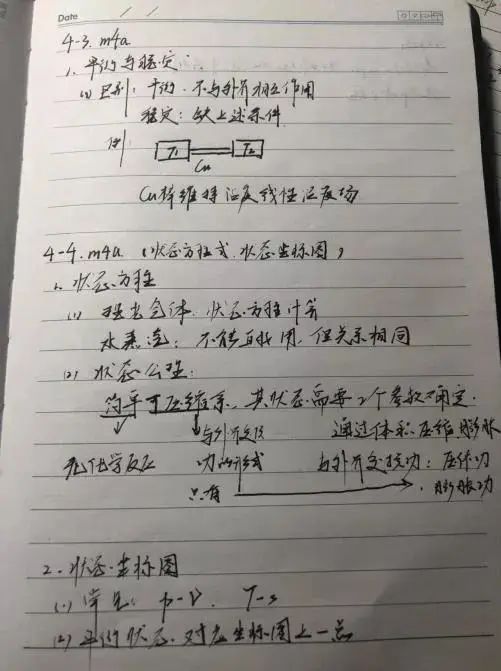 Date / /
4-3. m4a
1. 平衡与稳定
(1) 区别: 平衡: 不与外界相互作用
稳定: 缺上述条件
例: T1 T2
Cu
Cu棒维持温度线性温度场
4-4. m4a (状态方程式, 状态坐标图)
1. 状态方程
(1) 理想气体, 状态方程计算
水蒸汽: 不能直接用, 但关系相同
(2) 状态公理:
简单可压缩系, 其状态需要2个参数确定.
与外界交换 通过体积压缩膨胀
无化学反应 功的形式 与外界交换功: 压缩功
只有 膨胀功
2. 状态坐标图
(1) 常见: p-v. T-s
(2) 平衡状态. 对应坐标图上一点